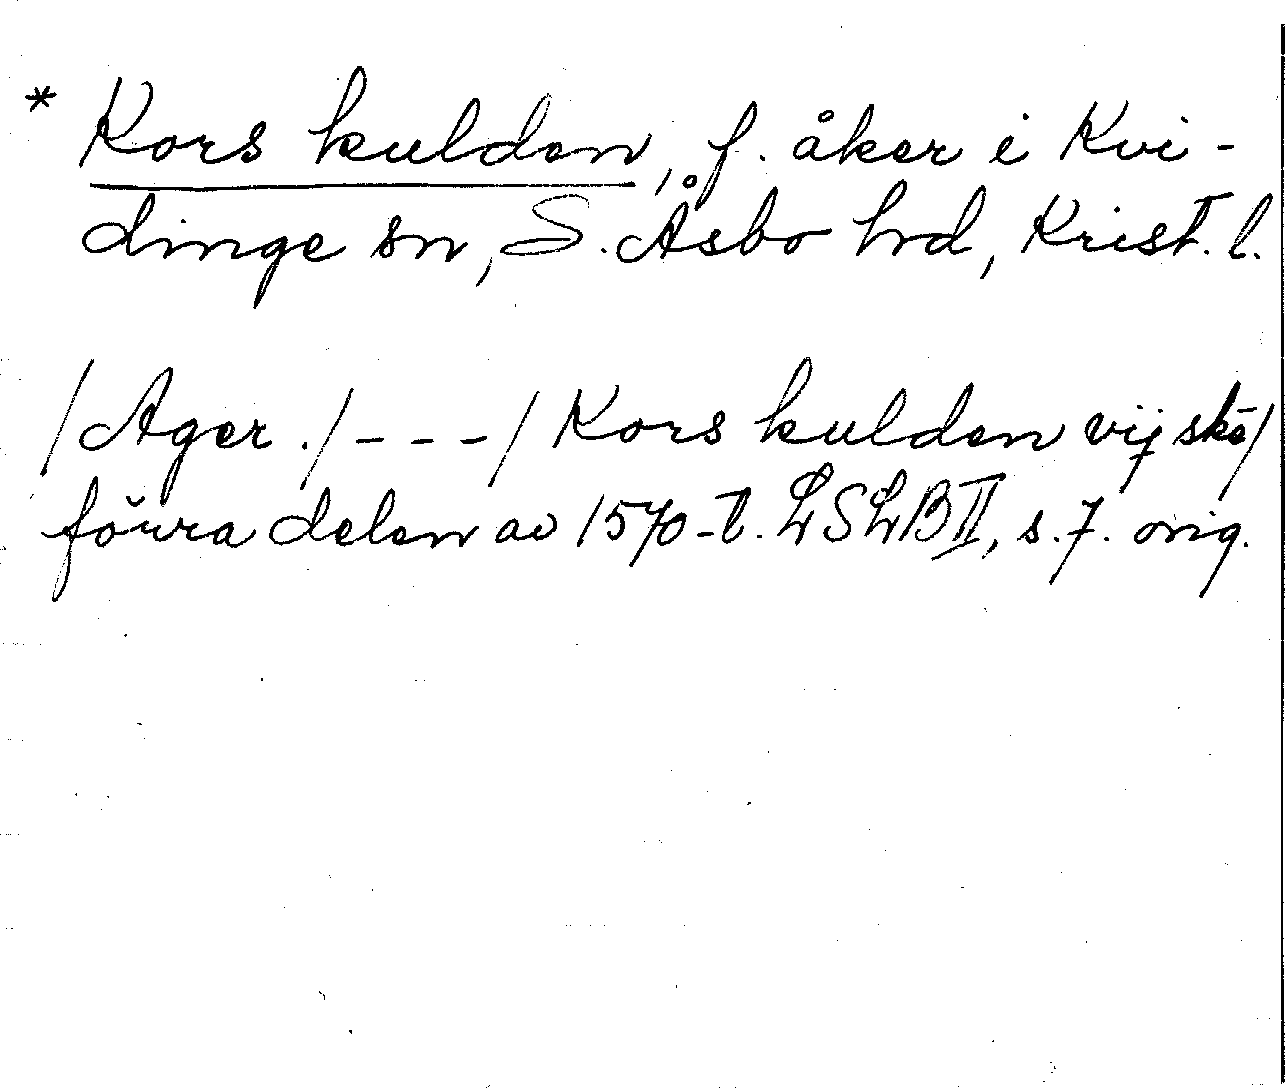 * Kors kulden, f. åker i Kvi-
dinge sn, S. Åsbo hrd, Krist. l.
/Ager ./ - - - / Kors kulden vij skē/
förra delen av 1570-t. LSLB II, s. 7. orig.